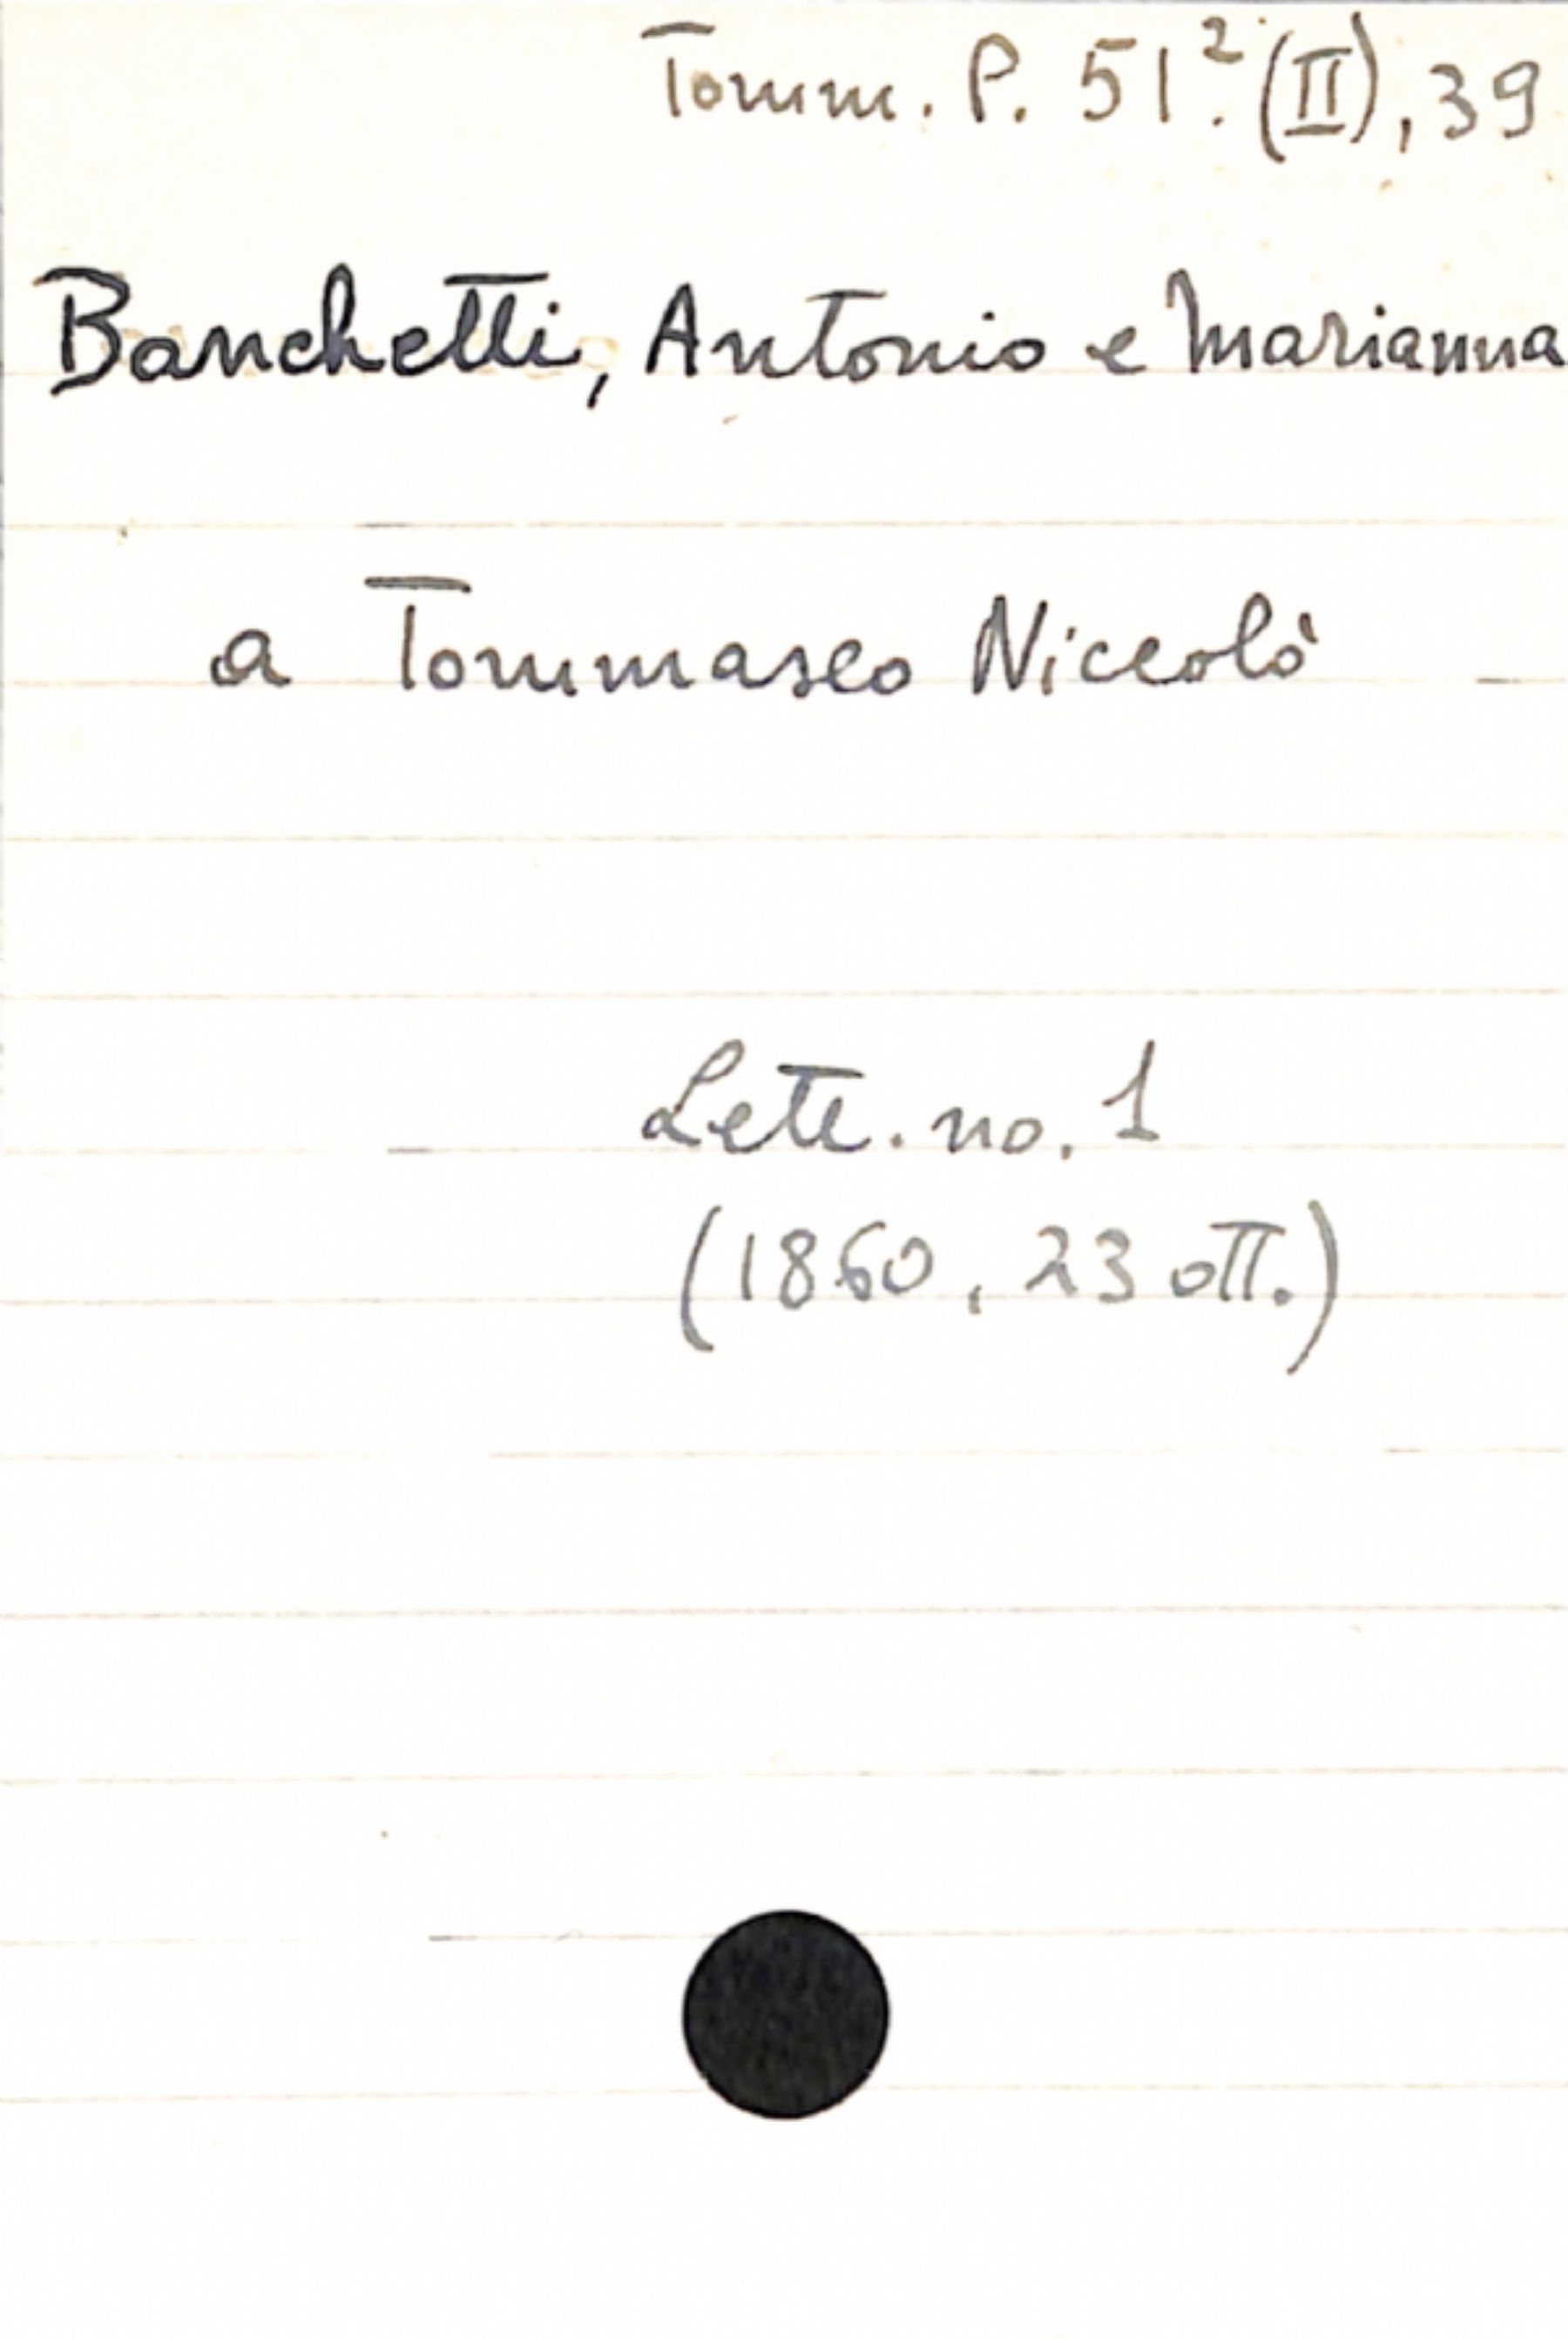 Tomm. P. 51.² (II), 39
Banchetti, Antonio e Marianna
a Tommaseo Niccolò
Lett. no. 1
(1860, 23 ott.)